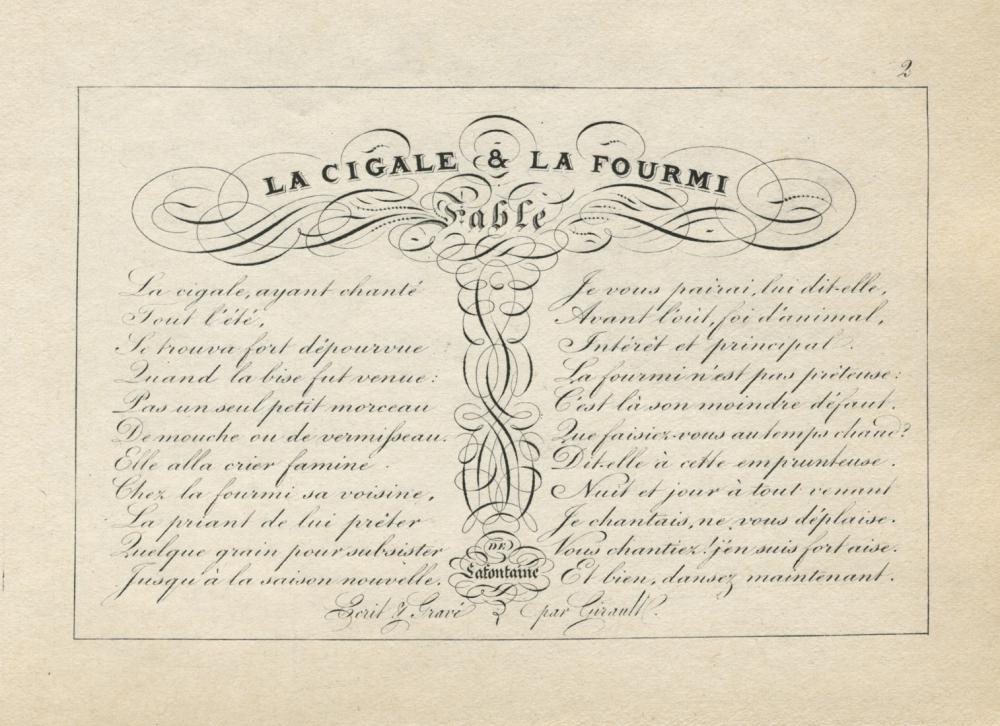 2
LA CIGALE & LA FOURMI
Fable
La cigale, ayant chanté
Tout l'été,
Se trouva fort dépourvue
Quand la bise fut venue:
Pas un seul petit morceau
De mouche ou de vermisseau.
Elle alla crier famine
Chez la fourmi sa voisine,
La priant de lui prêter
Quelque grain pour subsister
Jusqu'à la saison nouvelle.
Je vous pairai, lui dit-elle,
Avant l'oût, foi d'animal,
Intérêt et principal.
La fourmi n'est pas prêteuse:
C'est là son moindre défaut.
Que faisiez-vous au temps chaud?
Dit-elle à cette emprunteuse.
Nuit et jour à tout venant
Je chantais, ne vous déplaise.
Vous chantiez! j'en suis fort aise.
Et bien, dansez maintenant.
DE
Lafontaine
Ecrit & Gravé par Girault.